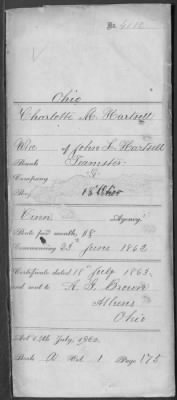 No. 4118
Ohio
Charlotte M. Hartsell
Wid. of John L. Hartsell
Rank Teamster
Company F
Reg. 18 Ohio
Cinn Agency
Rate per month, $8
Commencing 23d June 1862
Certificate dated 18th July 1863
and sent to R. G. Brown
Athens
Ohio
Act 14th July, 1862.
Book A Vol. 1 Page 175